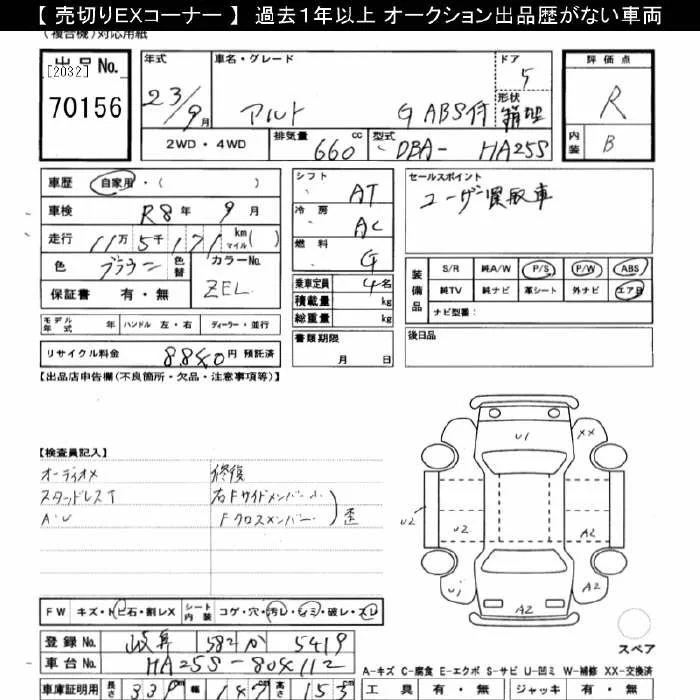 【 売切りEXコーナー 】 過去1年以上 オークション出品歴がない車両
(複合機)対応用紙
出品No. [2032]
70156
年式 23/9月
車名・グレード アルト G ABS付
ドア 5
形状 箱型
評価点 R
内装 B
2WD・4WD
排気量 660 cc
型式 DBA- HA25S
車歴 自家用・( )
車検 R8年 9月
走行 11万 5千 171 km マイル( )
色 ブラウン 色替
カラーNo. ZEL
保証書 有・無
シフト AT
冷房 AC
燃料 G
乗車定員 4名
積載量 kg
総重量 kg
書類期限 月 日
セールスポイント
ユーザー買取車
装備品 S/R 純A/W P/S P/W ABS
純TV 純ナビ 革シート 外ナビ エアB
ナビ型番:
モデル年式 年 ハンドル 左・右 ディーラー・並行
後日品
リサイクル料金 8840円 預託済
【出品店申告欄(不良箇所・欠品・注意事項等)】
【検査員記入】
オーディオメ 修復
スタッドレスT 右Fサイドメンバー小
A・U Fクロスメンバー 歪
U1 XX
U2 U2 A2
U1 A2 A2
スペア
FW キズ・トビ石・割レX シート内装 コゲ・穴・汚レ・シミ・破レ・スレ
登録No. 岐阜 582 か 5419
車台No. HA25S-804112
A-キズ C-腐食 E-エクボ S-サビ U-凹ミ W-補修 XX-交換済
車庫証明用 長さ 339cm 幅 147cm 高さ 153cm
工具 有・無 ジャッキ 有・無